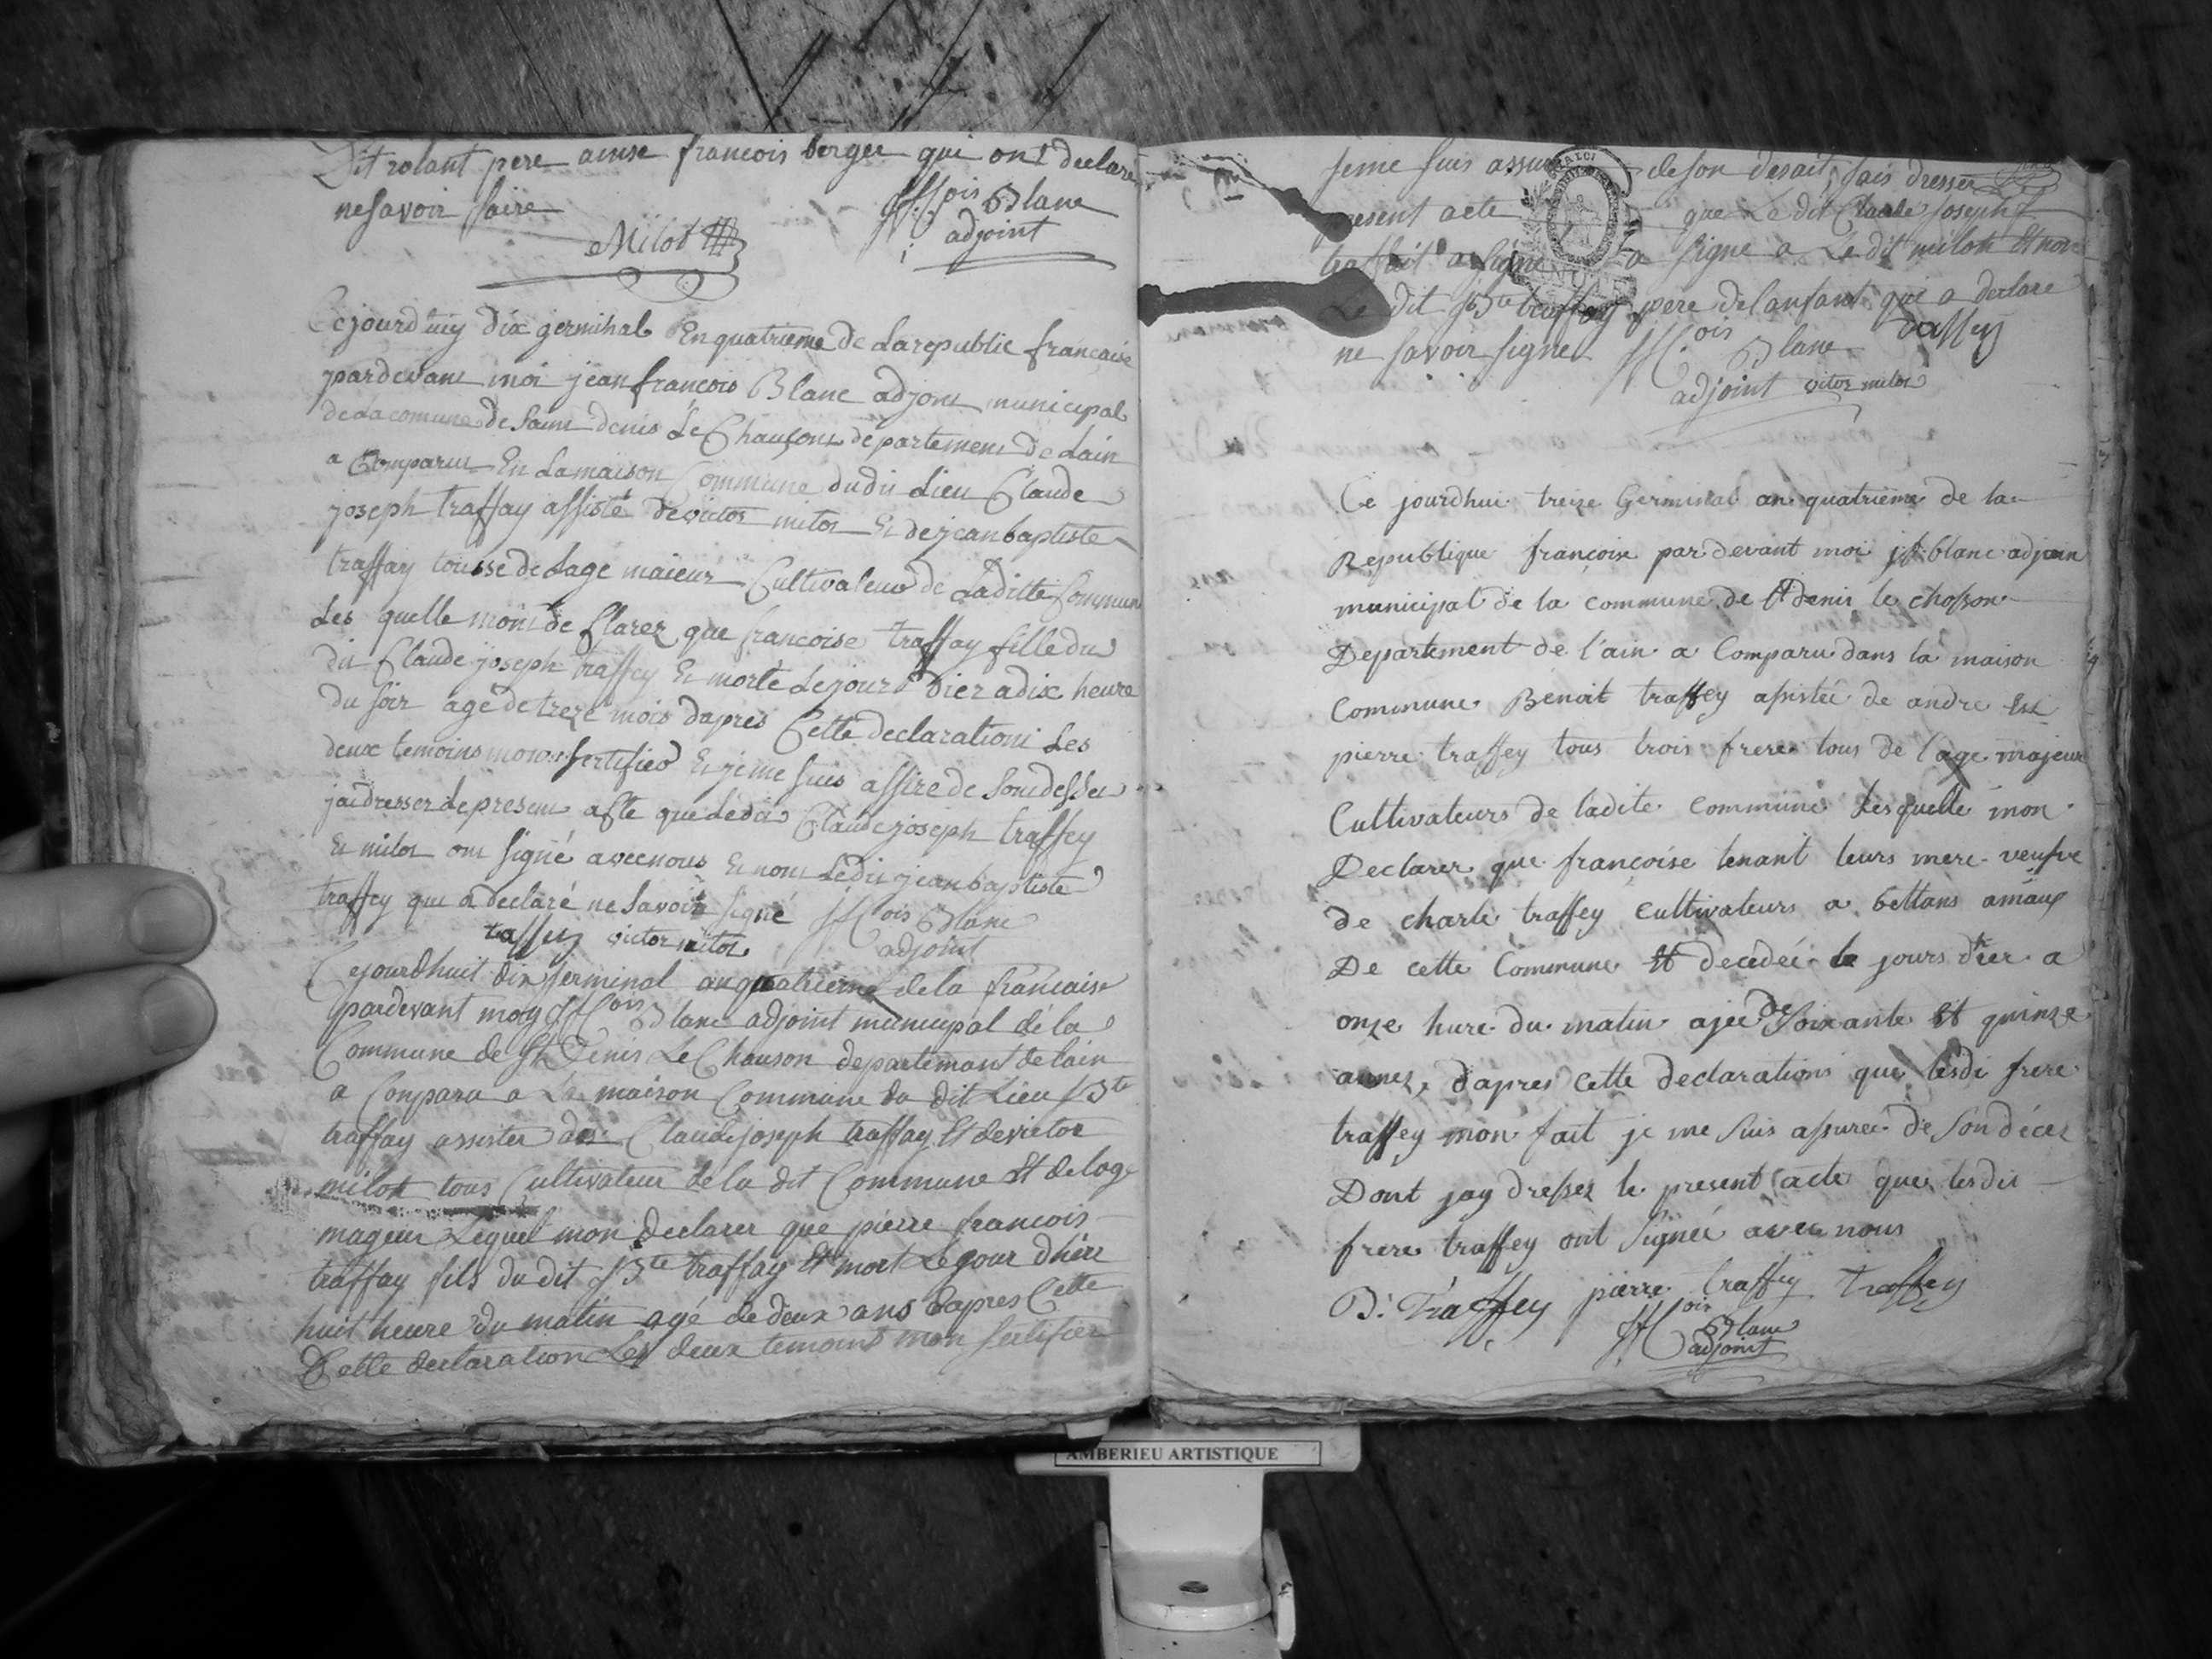 Dit rolant pere ainse francois berger qui ont declaré
ne savoir faire
Milot
jffois Blanc
adjoint
Cejourd'huy dix germinal En quatrieme de La republic francaise
pardevant moi jean francois Blanc adjoint municipal
de La comune de Saint denis Le Chausont departement de Lain
a Comparut En La maison Commune dudit Lieu Claude
joseph traffay assisté de victor milot Et de jean baptiste
traffay tousse de Lage maieur Cultivateur de Laditte Commun
Les quelle mont de Clarez que francoise traffay fille du
dit Claude joseph traffey Et morte Le jour d'hier a dix heure
du soir agé de treze mois dapres Cette declaration Les
deux temoins mont sertified Et je me suis assire de son desses
jai dresser Le present aste que Le dit Claude joseph traffey
Et milot ont signé avec nous Et non Le dit jean baptiste
traffey que a declaré ne Savoir signé jffois Blanc
taffey victor milot adjoint
Cejourdhuit dix germinal an quatrieme de la francaise
pardevant moy jffois Blanc adjoint municipal de la
Commune de St Denis Le Chauson departemant de lain
a Conparu a La maison Commune du dit Lieu jBte
traffay assister de Claude joseph traffay Et de victor
milot tous Cultivateur de la dit Commune Et de lage
mageur Lequel mon declarer que pierre francois
traffay fils du dit jBte traffay Et mort Le jour dhier
huit heure du matin agé de deux ans dapres Cette
Cette declaration Les deux temoins mon sertifier
jeme suis assuré de son desait, fais dresser Le
present acte que Le dit Claude Joseph
traffait a signé a signe a Le dit milott Et non
Le dit jBte traffay pere de lanfant qui a declare
ne savoir signe jffois Blanc taffey
adjoint victor milot
Ce jourdhui treize Germinal an quatrieme de la
Republique françoise par devant moi jf blanc adjoin
municipal de la commune de St denis le chosson
Departement de l'ain a Comparu dans la maison
Commune Benoit traffey assistée de andre Et
pierre traffey tous trois frere tous de lage majeur
Cultivateurs de ladite Commune Lesquelle mon
Declarer que françoise tenant leurs mere veufve
de charle traffey Cultivateurs a bettans amaux
De cette Commune Et decedée le jours d'ier a
onze hure du matin ajée de Soixante Et quinze
annez, dapres Cette declarations que lesdi frere
traffey mon fait je me suis assuree de Son décez
Dont jay dressez le present acte que lesdis
frere traffey ont Signée avec nous
B. Traffey pierre traffey Traffey
jffois Blanc
adjoint
AMBERIEU ARTISTIQUE